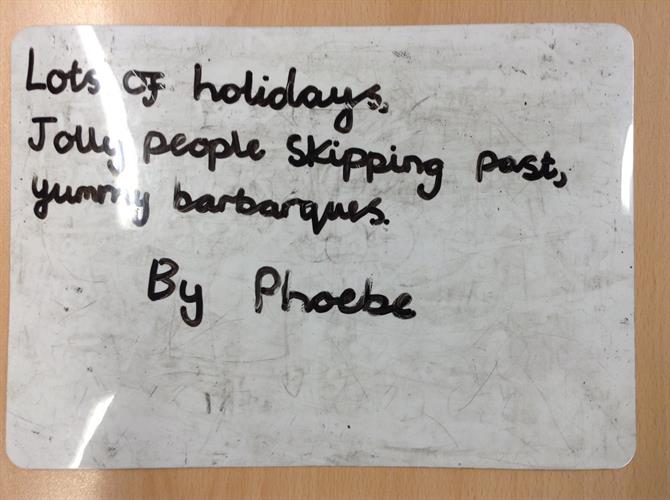 Lots of holidays,
Jolly people skipping past,
yummy barbarques.
By Phoebe